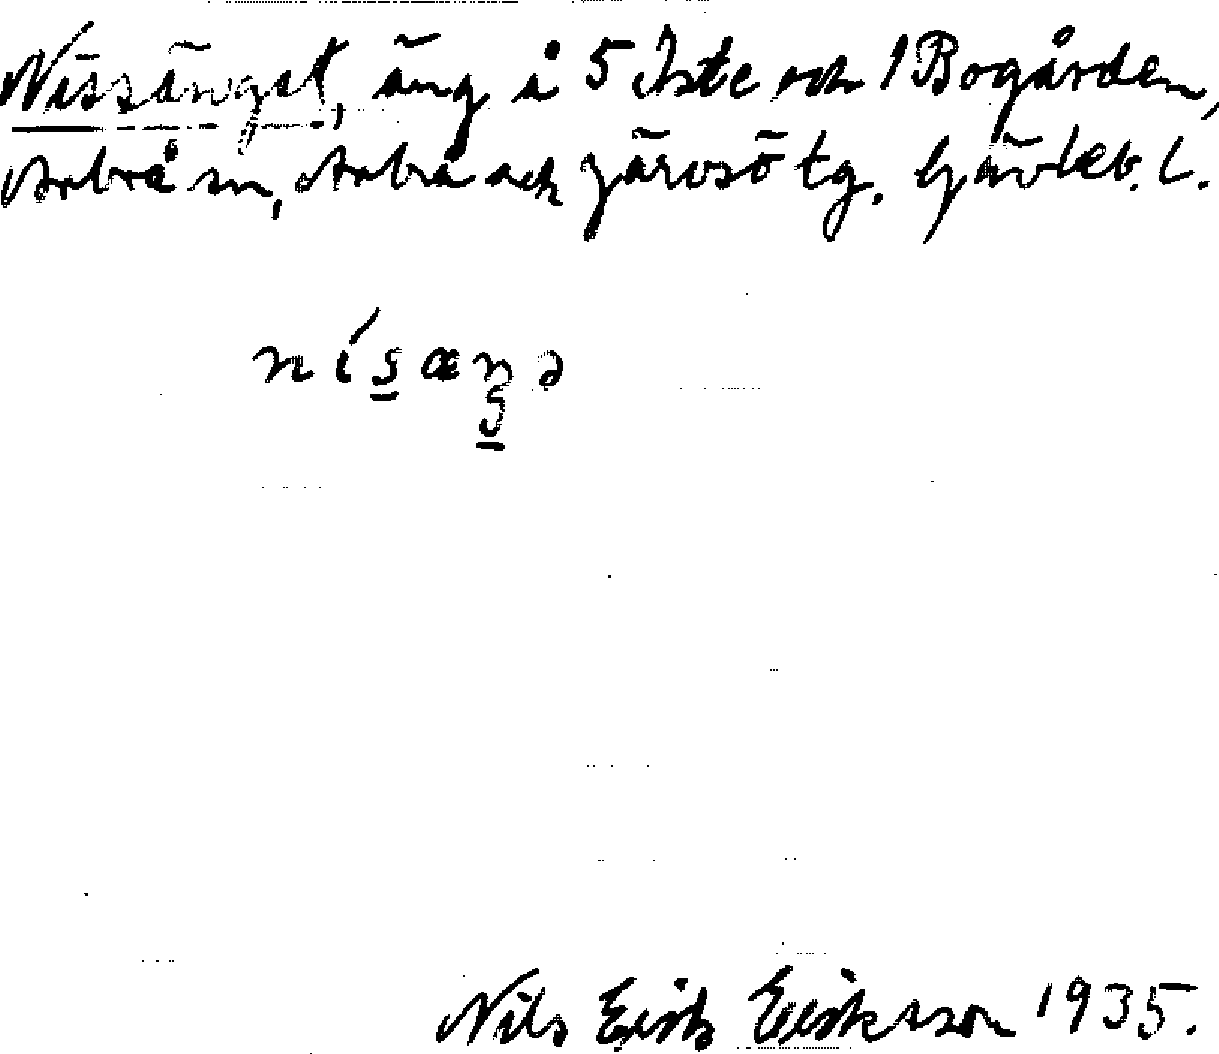 Nissänget, äng å 5 Iste och 1 Bogården,
Arbrå sn, Arbrå och Järvsö tg. Gävleb. l.
nísæŋə
Nils Erik Eriksson 1935.